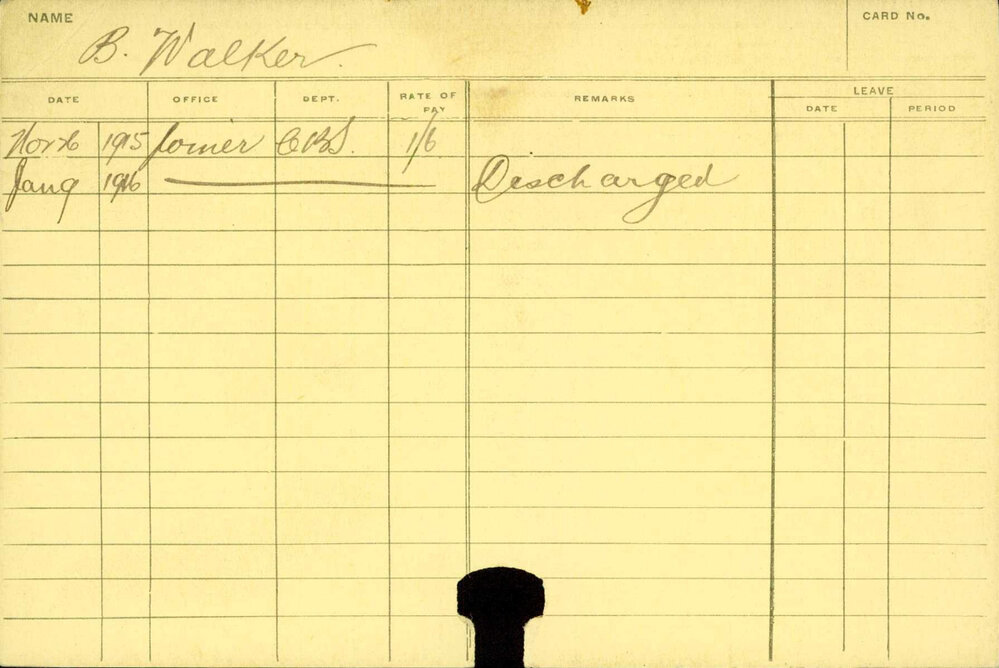 NAME
CARD No.
B. Walker.
DATE OFFICE DEPT. RATE OF PAY REMARKS LEAVE
DATE PERIOD
1915 Joiner 1/6
Jan 1916 Discharged